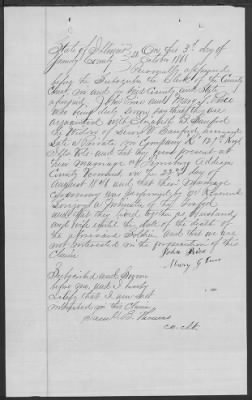 State of Illinois } On this 3rd day of
County } SS October 1881
Personally appeared
before the Subscriber the Clerk of the County
Court in and for said County and State
aforesaid, John Rice and Mary G. Rice
who being duly sworn say that they are
acquainted with Elizabeth A. Sanford
the Widow of Lewis W. Sanford, deceased
late a Private in Company K 127th Regt
Ills Vols and that they were present at
their marriage at Lynsburg Addison
County Vermont on the 22nd day of
August 1841 and that their Marriage
Ceremony was performed by
a Minister of the Gospel
and that they lived together as Husband
and wife untill the date of the death of
the aforesaid Soldier. and that we are
not interested in the prosecution of this
Claim
John Rice
Mary G Rice
Subscribed and Sworn
before me, and I hereby
Certify that I am not
interested in this Claim
Saml B. Thomas
co. clk